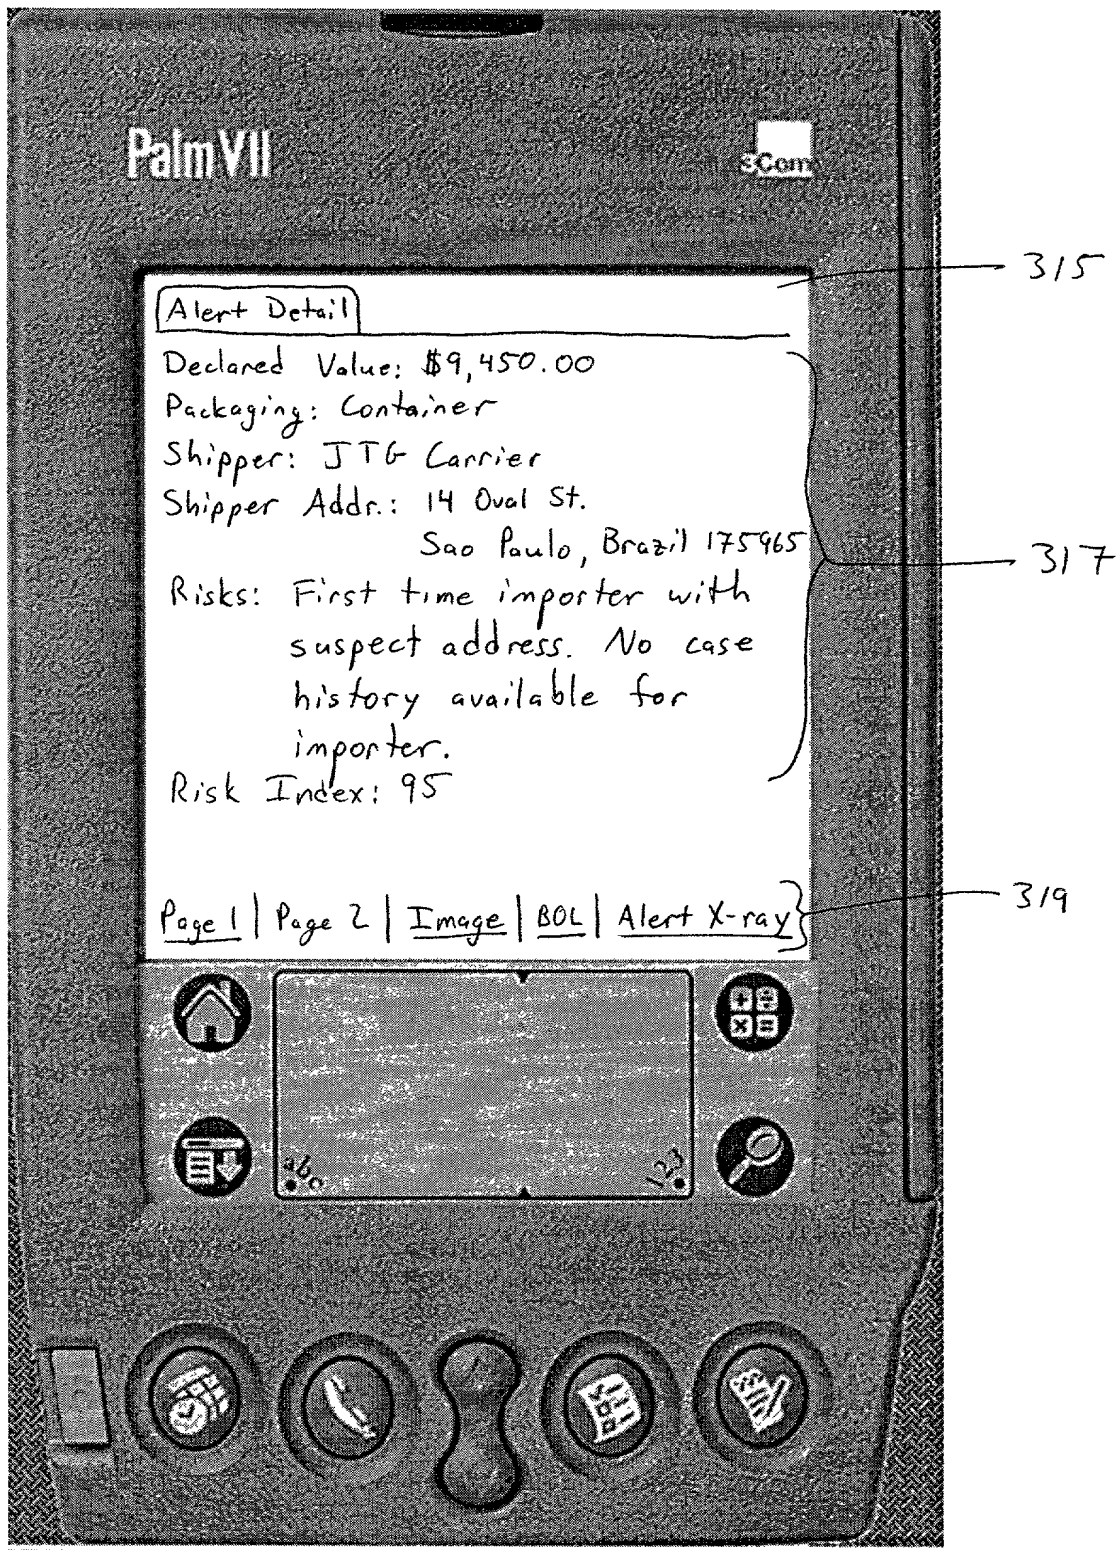 PalmVII
3Com
315
Alert Detail
Declared Value: $9,450.00
Packaging: Container
Shipper: JTG Carrier
Shipper Addr.: 14 Oval St.
Sao Paulo, Brazil 175965
317
Risks: First time importer with
suspect address. No case
history available for
importer.
Risk Index: 95
319
Page 1 | Page 2 | Image | BOL | Alert X-ray
abc
123